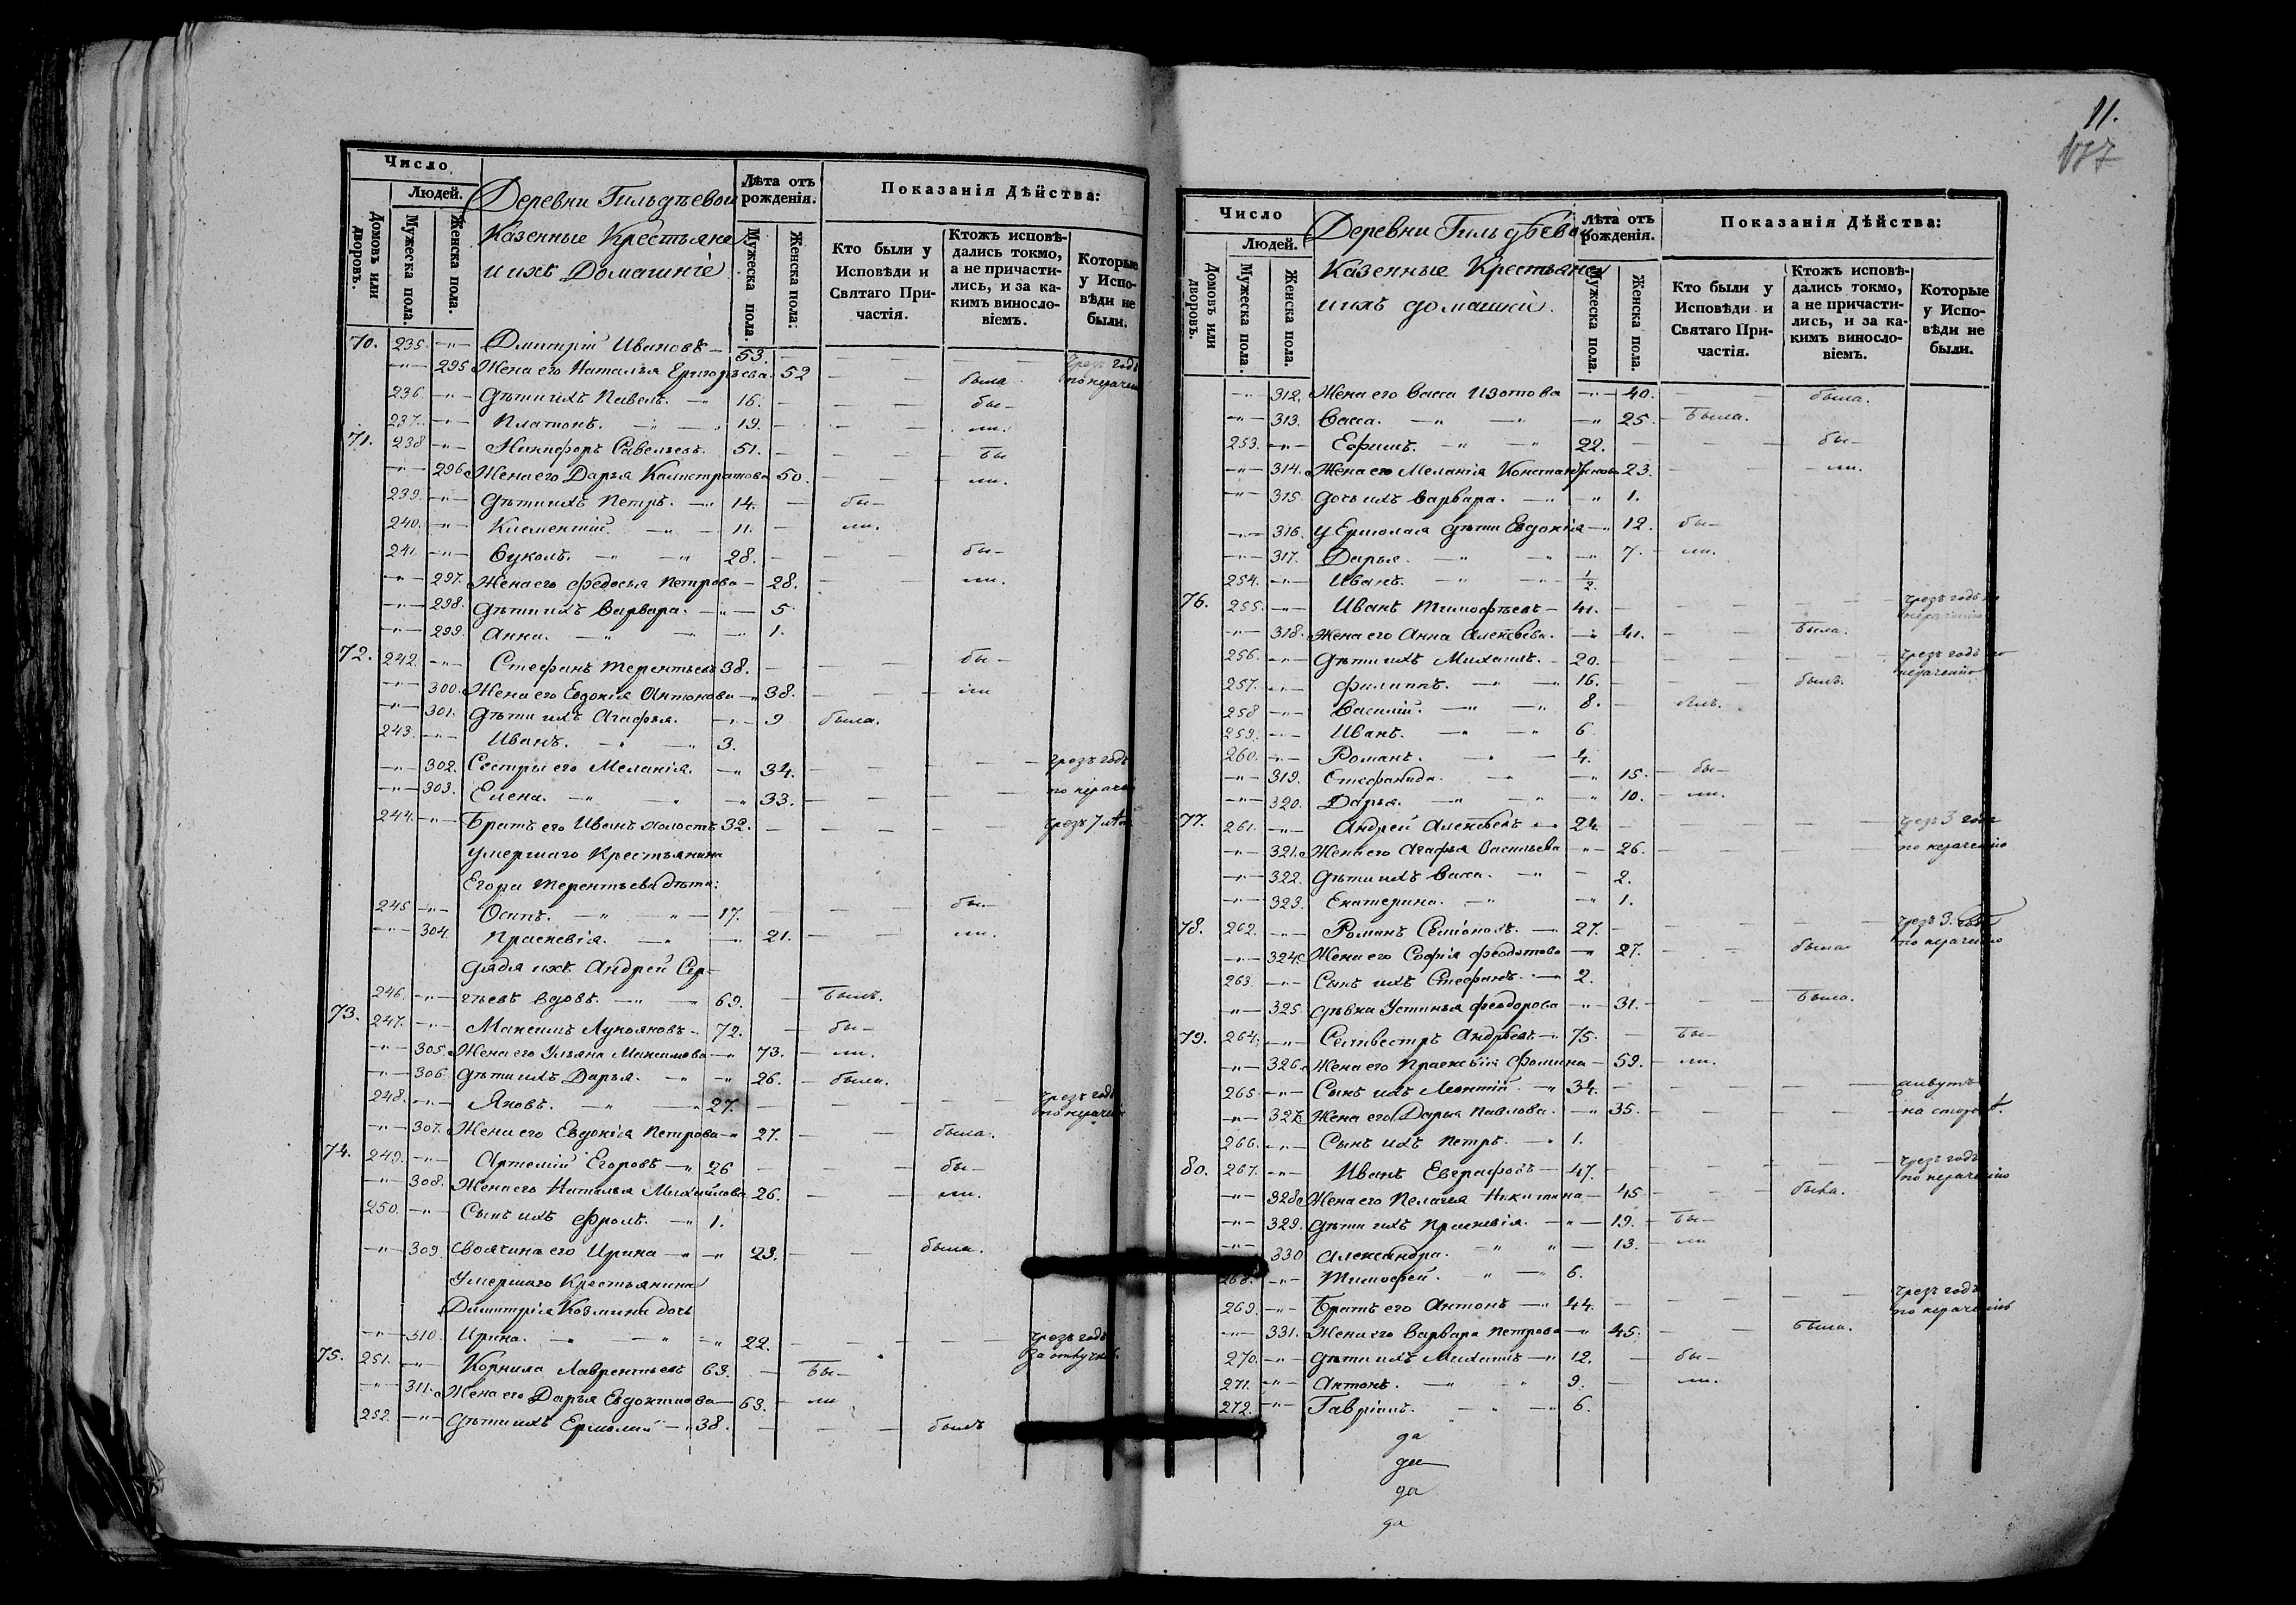 Число
Людей.
Домовъ или дворовъ.
Мужеска пола.
Женска пола.
Деревни Гильдѣевой
Казенные Крестьяне
и ихъ Домашніе
Лѣта отъ рожденія.
Мужеска пола.
Женска пола:
Показанія Дѣйства:
Кто были у Исповѣди и Святаго Причастія.
Ктожъ исповѣдались токмо, а не причастились, и за какимъ винословіемъ.
Которые у Исповѣди не были.
70. 235. -"- Дмитрій Ивановъ - 53. чрез годъ
-"- 295 Жена его Наталья Григорьева. 52 была по нерачен
236. -"- Дѣти ихъ Павелъ. -"- 16. бы-
237. -"- Платонъ. -"- 19. ли.
71. 238 -"- Никифоръ Савельевъ. 51. бы
-"- 296 Жена его Дарья Калистратова 50. ли.
239. -"- Дѣти ихъ Петръ. -"- 14. бы-
240. -"- Климентій. -"- 11. ли.
241. -"- Вуколъ. -"- 28. бы-
-"- 297. Жена его Федосья Петрова - 28. ли.
-"- 298. Дѣти ихъ Варвара. -"- 5.
-"- 299. Анна. -"- 1.
72. 242. -"- Стефанъ Терентьевъ 38. бы-
-"- 300. Жена его Евдокія Антонова -"- 38. ли
-"- 301. Дѣти ихъ Агафья. -"- 9 была.
243. -"- Иванъ. -"- 3.
-"- 302. Сестры его Меланія. -"- 34. чрезъ годъ
-"- 303. Елена. -"- 33. по нерачен
244. -"- Братъ его Иванъ холостъ 32. чрезъ 7 лѣтъ
умершаго Крестьянина
Егора Терентьева дѣти:
245 -"- Осипъ. -"- 17. бы-
-"- 304. Праскевія. -"- 21. ли.
дядя ихъ Андрей Сер-
246. -"- гѣевъ вдовъ. -"- 69. былъ.
73. 247. -"- Максимъ Лукояновъ - 72. бы-
-"- 305. Жена его Ульяна Максимова -"- 73. ли.
-"- 306 Дѣти ихъ Дарья. -"- 26. была.
248. -"- Яковъ. -"- 27. чрезъ годъ по нерачен
-"- 307. Жена его Евдокія Петрова -"- 27. была.
74. 249. -"- Артемій Егоровъ -"- 26 бы-
-"- 308. Жена его Наталья Михайлова 26. ли.
250. -"- Сынъ ихъ Фролъ. -"- 1.
-"- 309. Своячина его Ирина -"- 23. была.
Умершаго Крестьянина
Димитрія Козмина дочь
-"- 310. Ирина. -"- 22. чрезъ годъ за отлучк.
75. 251. -"- Корнила Лаврентьевъ 63. бы-
-"- 311. Жена его Дарья Евдокимова - 63. ли
252. -"- Дѣти ихъ Ермолай -"- 38. былъ
11.
Число
Людей.
Домовъ или дворовъ.
Мужеска пола.
Женска пола.
Деревни Гильдѣевой
Казенные Крестьяне
и ихъ домашніе.
лѣта отъ рожденія.
Мужеска пола.
Женска пола.
Показанія Дѣйства:
Кто были у Исповѣди и Святаго Причастія.
Ктожъ исповѣдались токмо, а не причастились, и за какимъ винословіемъ.
Которые у Исповѣди не были.
-"- 312. Жена его Васса Изотова -"- 40. была.
-"- 313. Васса. -"- 25. была.
253. -"- Ефимъ. -"- 22. бы-
-"- 314. Жена его Меланія Константинова 23. ли.
-"- 315. дочь ихъ Варвара. -"- 1.
-"- 316. у Ермолая дѣти Евдокія -"- 12. бы-
-"- 317. Дарья. -"- 7. ли.
254. -"- Иванъ. -"- 1/2
76. 255. -"- Иванъ Тимофѣевъ - 41. чрезъ годъ по нерачению
-"- 318. Жена его Анна Алексѣева. -"- 41. была.
256. -"- Дѣти ихъ Михаилъ. - 20. чрезъ годъ по нерачению
257. -"- Филиппъ. -"- 16. былъ.
258 -"- Василій. -"- 8. былъ.
259. -"- Иванъ. -"- 6
260. -"- Романъ. -"- 4.
-"- 319. Стефанида. -"- 15. бы-
-"- 320. Дарья. -"- 10. ли.
77. 261. -"- Андрей Алексѣевъ -"- 24. чрезъ 3 года
-"- 321. Жена его Агафья Васильева -"- 26. по нерачению
-"- 322. Дѣти ихъ Васса. -"- 2.
-"- 323. Екатерина. -"- 1.
78. 262. -"- Романъ Семіоновъ. -"- 27. чрезъ 3. года по нерачению
-"- 324. Жена его Софія Феодотова -"- 27. была
263 -"- Сынъ ихъ Стефанъ. -"- 2.
-"- 325. дѣвка Устинья Феодорова -"- 31. была.
79. 264. -"- Селивестръ Андреевъ -"- 75. бы-
-"- 326. Жена его Праскевія Фомина - 59. ли.
265. -"- Сынъ ихъ Леонтій -"- 34. живутъ
-"- 327. Жена его Дарья Павлова. -"- 35. на сторонѣ.
266. -"- Сынъ ихъ Петръ. -"- 1.
80. 267. -"- Иванъ Евграфовъ - 47. чрезъ годъ по нерачению
-"- 328. Жена его Пелагея Никитина - 45 была.
-"- 329. Дѣти ихъ Праскевія. -"- 19. бы-
-"- 330 Александра. -"- 13. ли
268. -"- Тимофей. -"- 6.
269. -"- Братъ его Антонъ -"- 44. чрезъ годъ по нерачению
-"- 331. Жена его Варвара Петрова -"- 45. была.
270. -"- Дѣти ихъ Михаилъ -"- 12. бы-
271. -"- Антонъ. -"- 9. ли.
272. -"- Гавріилъ. -"- 6.
да
да
да
да